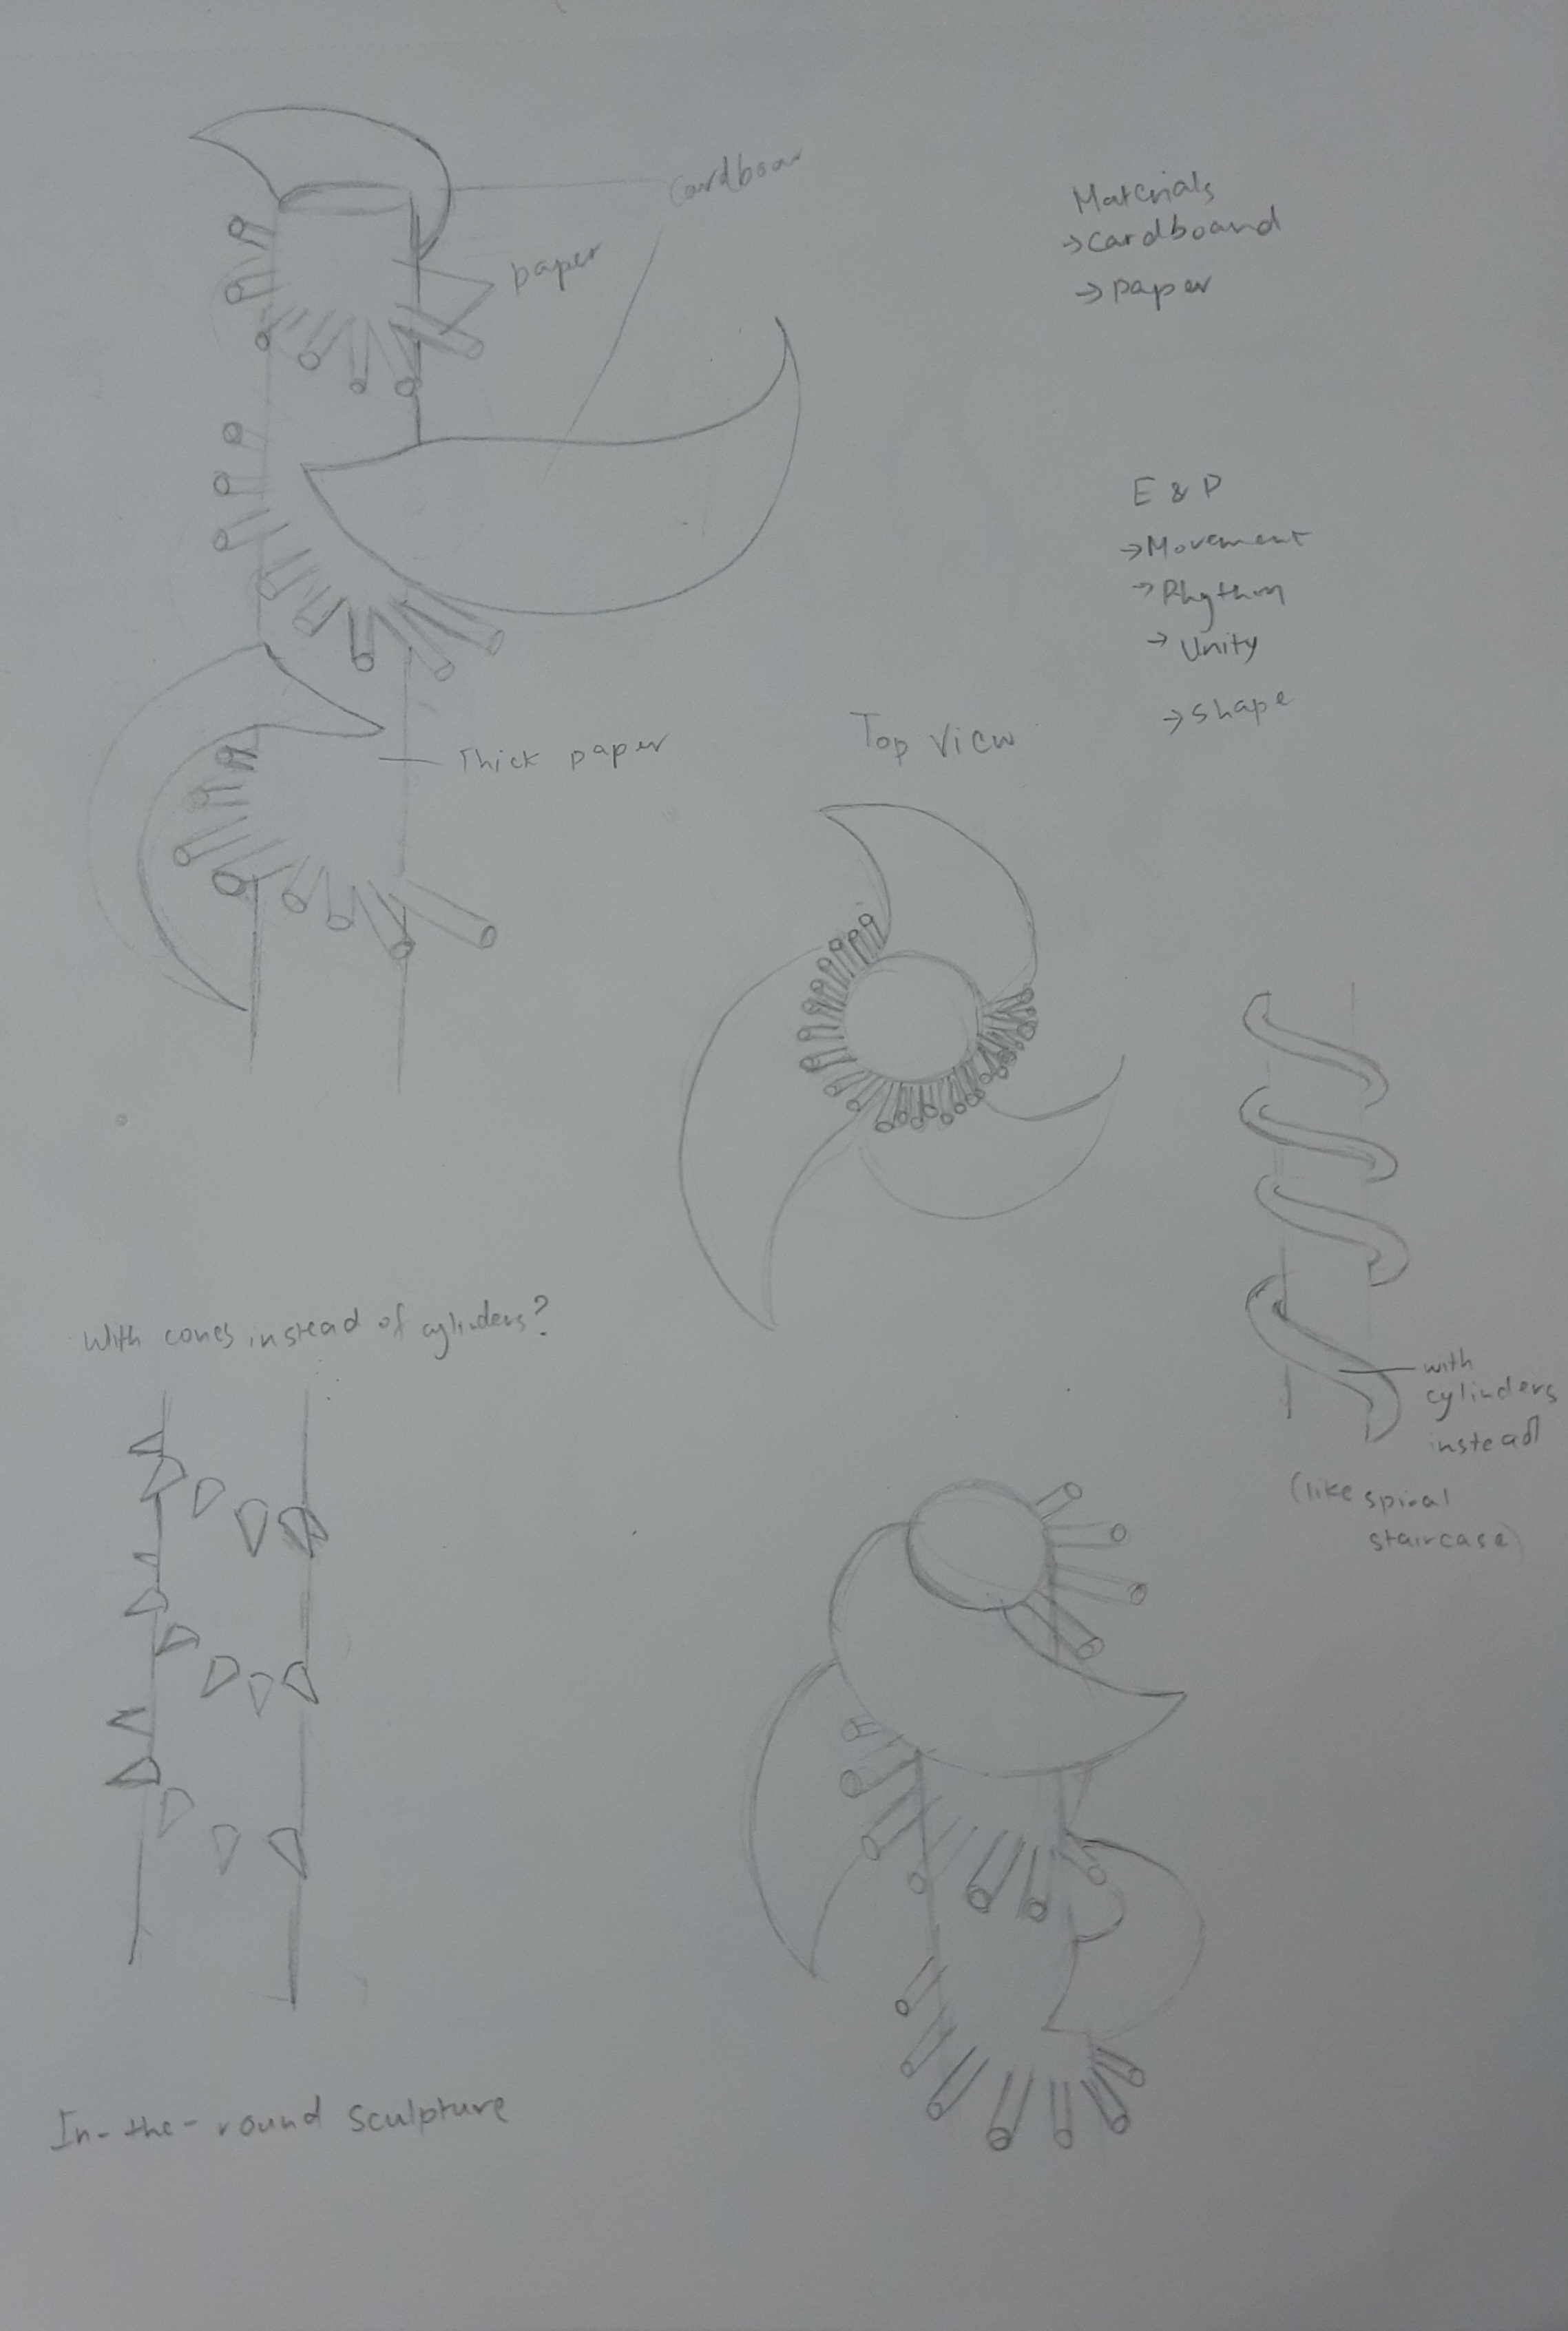 cardboar
paper
Thick paper
Materials
→ cardboard
→ paper
E & P
→ Movement
→ Rhythm
→ Unity
→ shape
Top view
with
cylinders
instead
(like spiral
staircase)
With cones instead of cylinders?
In-the-round sculpture